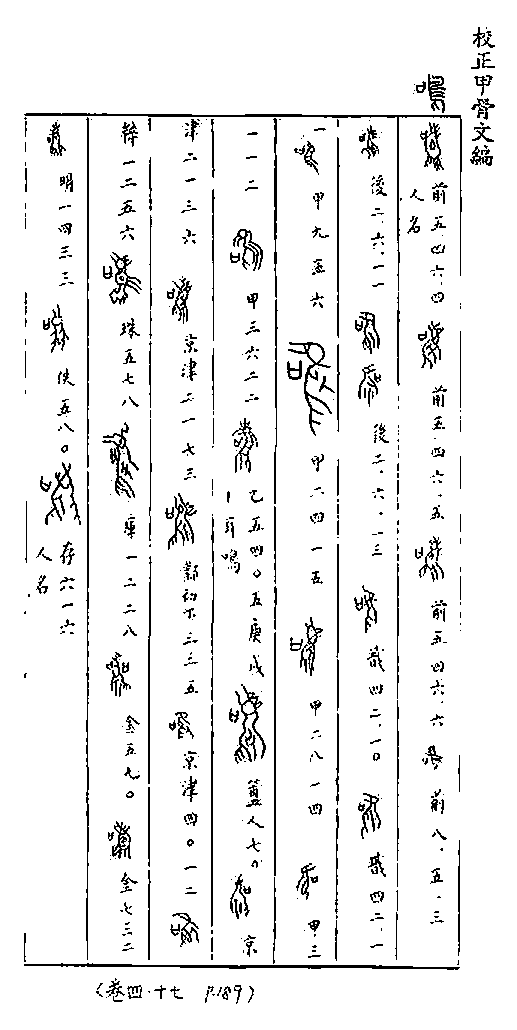 校正甲骨文編
鳴
前五.四六.四 人名 前五.四六.五 前五.四六.六 前八.五.三
後二.六.一一 後二.六.一三 戩四二.一〇 戩四二.一
一 甲九五六 甲二四一五 甲二八一四 甲三
一一二 甲三六二二 乙五四〇五庚戌 耳鳴 簠人七〇 京
津二一三六 京津二一七三 鄴初下三三五 京津四〇一二
粹一二五六 珠五七八 庫一二二八 金五九〇 金七三二
明一四三三 佚五八〇 存六一六 人名
(卷四·十七 P.189)